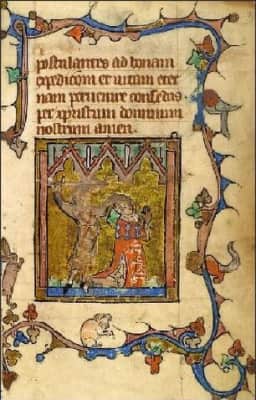 postulantes ad bonam
expedicom et uitam eter
nam peruenire concedas
per xpristum dominum
nostrum amen.